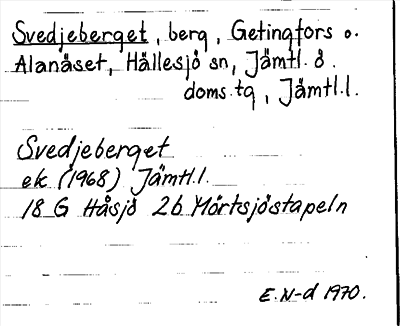 Svedjeberget, berg, Getingfors o.
Alanäset, Hällesjö sn, Jämtl. ö.
doms.tg, Jämtl.l.
Svedjeberget
ek (1968) Jämtl.l.
18 G Håsjö 2b Mörtsjöstapeln
E.N-d 1970.